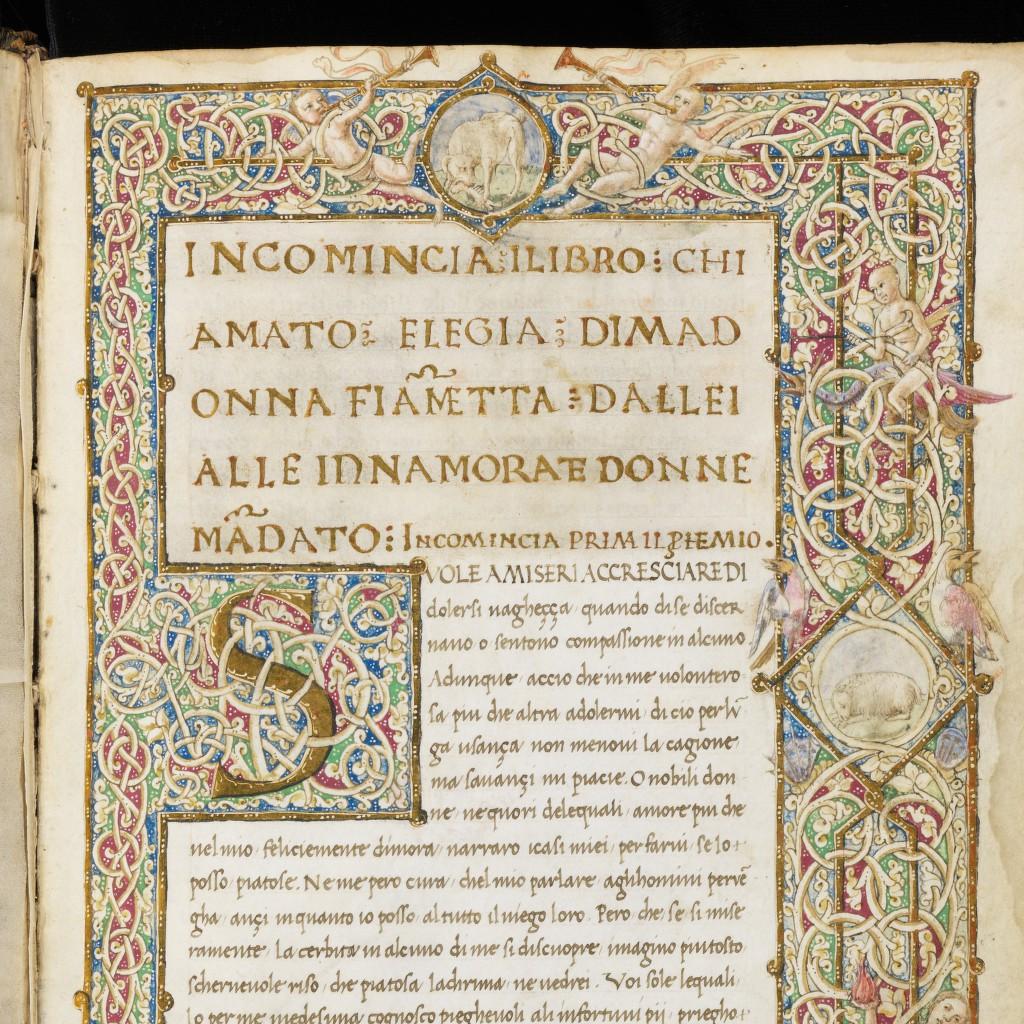 INCOMINCIA : ILIBRO : CHI
AMATO : ELEGIA : DIMAD
ONNA FIAM̃ETTA : DALLEI
ALLE INNAMORATE DONNE
MÃDATO : INCOMINCIA PRIMIL P̱HEMIO .
S
VOLE A MISERI ACCRESCIARE DI
dolersi vagheçça quando di se discer
nano o sentono compassione in alcuno
Adunque accio che in me volontero
sa piu che altra a dolermi di cio per lũ
ga usança non menovi la cagione
ma s'avançi mi piacie. O nobili don
ne ne quori dele quali amore piu che
nel mio feliciemente dimora narraro i casi miei per farvi se Io
posso piatose. Ne me pero cura chel mio parlare agli homini pervẽ
gha ançi in quanto io posso al tutto il niego loro. Pero che se si mise
ramente la cerbita in alcuno di me si discuopre imagino piu tosto
schernevole riso, che piatosa lachrima ne vedrei. Voi sole le quali
Io per me medesima cognosco pieghevoli ali infortuni pii priegho